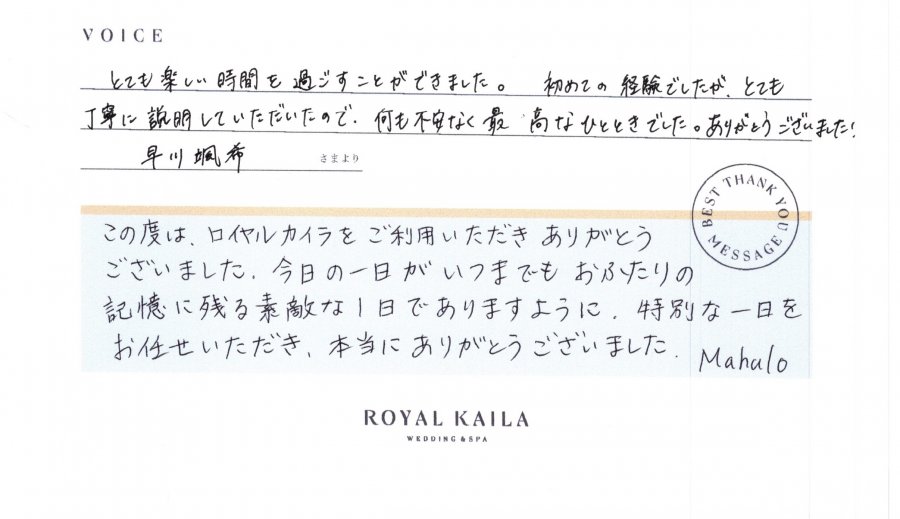 VOICE
とても楽しい時間を過ごすことができました。 初めての経験でしたが、とても
丁寧に説明していただいたので、何も不安なく最高なひとときでした。ありがとうございました!
早川颯希 さまより
BEST THANK YOU MESSAGE
この度は、ロイヤルカイラをご利用いただきありがとう
ございました。今日の一日がいつまでもおふたりの
記憶に残る素敵な1日でありますように。特別な一日を
お任せいただき、本当にありがとうございました。 Mahalo
ROYAL KAILA
WEDDING & SPA